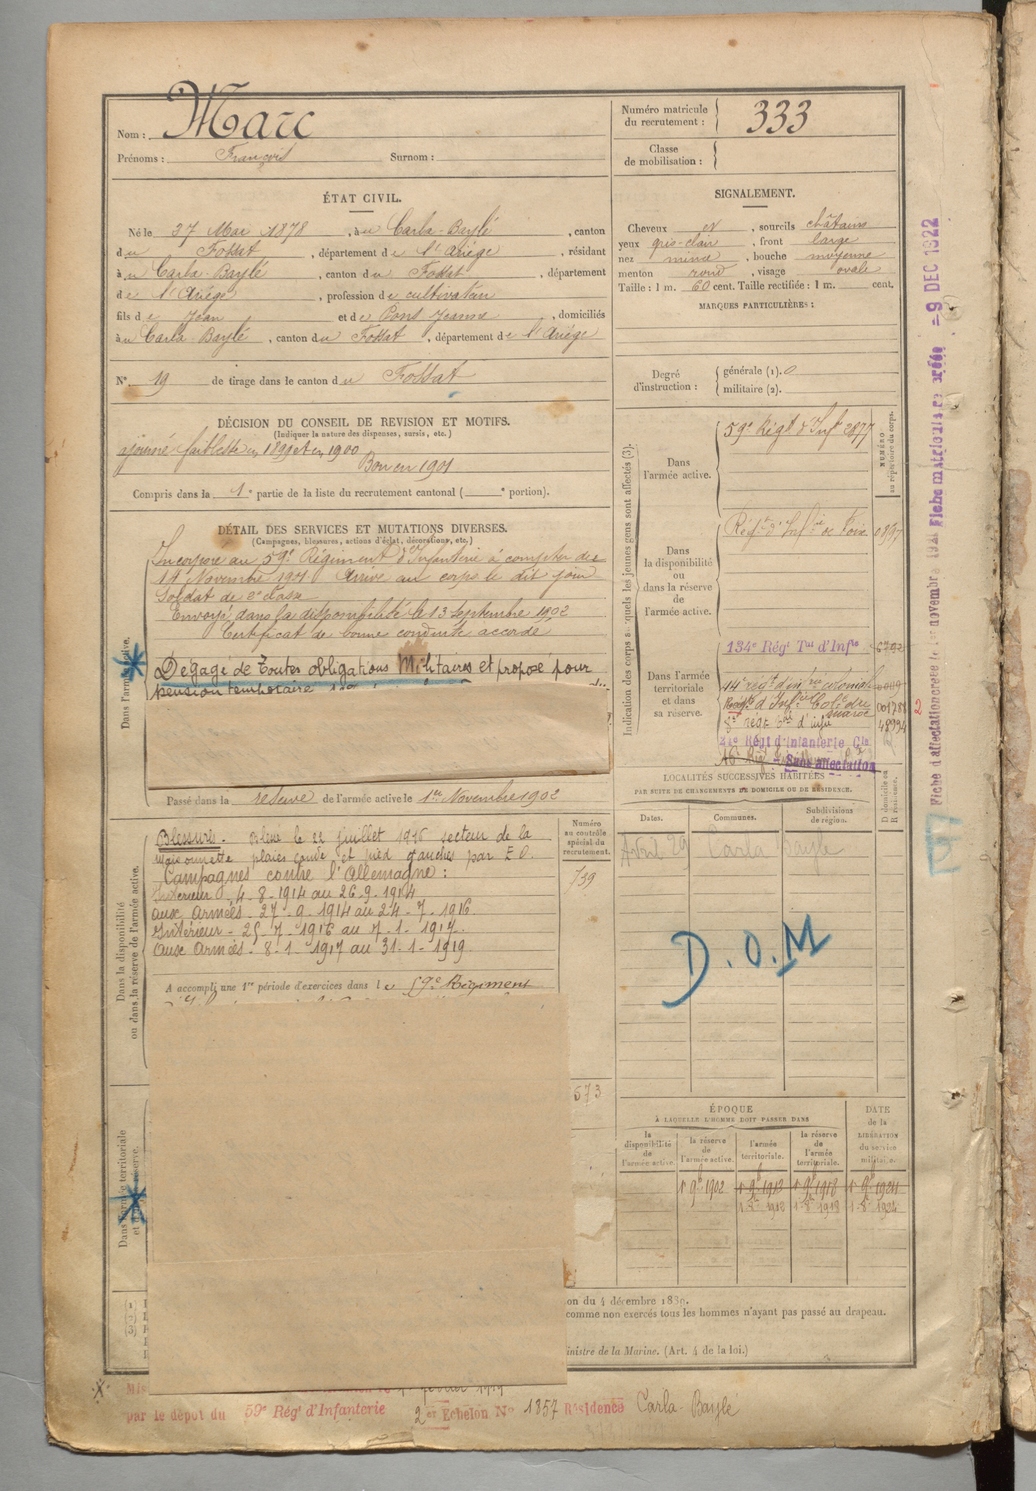 Nom : Marc
Prénoms : François Surnom :
Numéro matricule du recrutement : 333
Classe de mobilisation :
ÉTAT CIVIL.
Né le 27 Mai 1878, à u Carla-Baylé, canton
d u Fossat, département d e l'Ariège, résidant
à u Carla-Baylé, canton d u Fossat, département
d e l'Ariège, profession d e cultivateur
fils d e Jean et d e Pons Jeanne, domiciliés
à u Carla-Baylé, canton d u Fossat, département d e l'Ariège
N° 19 de tirage dans le canton d u Fossat
SIGNALEMENT.
Cheveux et, sourcils châtains
yeux gris-clair, front large
nez mince, bouche moyenne
menton rond, visage ovale
Taille : 1 m. 60 cent. Taille rectifiée : 1 m. cent.
MARQUES PARTICULIÈRES :
Degré d'instruction : générale (1). 0
militaire (2).
DÉCISION DU CONSEIL DE REVISION ET MOTIFS.
(Indiquer la nature des dispenses, sursis, etc.)
ajourné faiblesse en 1899 et en 1900
Bon en 1901
Compris dans la 1e partie de la liste du recrutement cantonal ( e portion).
DÉTAIL DES SERVICES ET MUTATIONS DIVERSES.
(Campagnes, blessures, actions d'éclat, décorations, etc.)
Dans l'armée active.
Incorporé au 59e Régiment d'Infanterie à compter du
14 Novembre 1901. Arrivé au corps le dit jour
Soldat de 2e classe
Envoyé dans la disponibilité le 13 Septembre 1902
Certificat de bonne conduite accordé
Dégagé de toutes obligations Militaires et proposé pour
pension temporaire
Passé dans la réserve de l'armée active le 1er Novembre 1902
Dans la disponibilité ou dans la réserve de l'armée active.
Blessure. le 22 juillet 1916 secteur de la
Maisonnette plaies coude et pied gauches par E.O.
Campagnes contre l'Allemagne :
Intérieur 4-8-1914 au 26-9-1914
aux Armées - 27-9-1914 au 24-7-1916
Intérieur - 25-7-1916 au 7-1-1917.
Aux Armées - 8-1-1917 au 31-1-1919
A accompli une 1re période d'exercices dans le 59e Régiment
Numéro au contrôle spécial du recrutement.
739
673
Dans l'armée territoriale et dans sa réserve.
Indication des corps auxquels les jeunes gens sont affectés (3).
NUMÉRO au répertoire du corps.
Dans l'armée active.
59e Régt d'Infie 2877
Dans la disponibilité ou dans la réserve de l'armée active.
Régt d'Infie de Foix 0897
Dans l'armée territoriale et dans sa réserve.
134e Régt Tal d'Infie 6792
14e régt d'infie coloniale
Régt d'Infie Colle du Maroc
Régt d'Infanterie Cle
Sans affectation
LOCALITÉS SUCCESSIVES HABITÉES
PAR SUITE DE CHANGEMENTS DE DOMICILE OU DE RÉSIDENCE.
Dates. Communes. Subdivisions de région. D domicile ou R résidence.
Avril 29 Carla Bayle
D.O.M
ÉPOQUE
À LAQUELLE L'HOMME DOIT PASSER DANS
DATE de la LIBÉRATION du service militaire.
la disponibilité de l'armée active. la réserve de l'armée active. l'armée territoriale. la réserve de l'armée territoriale.
1 9bre 1902 1 9bre 1912 1 9bre 1918
ion du 4 décembre 1889.
comme non exercés tous les hommes n'ayant pas passé au drapeau.
Ministre de la Marine. (Art. 4 de la loi.)
par le dépôt du 59e Régt d'Infanterie 2er Echelon N° 1857 Résidence Carla-Baylé
Fiche matricule - 9 DEC 1922